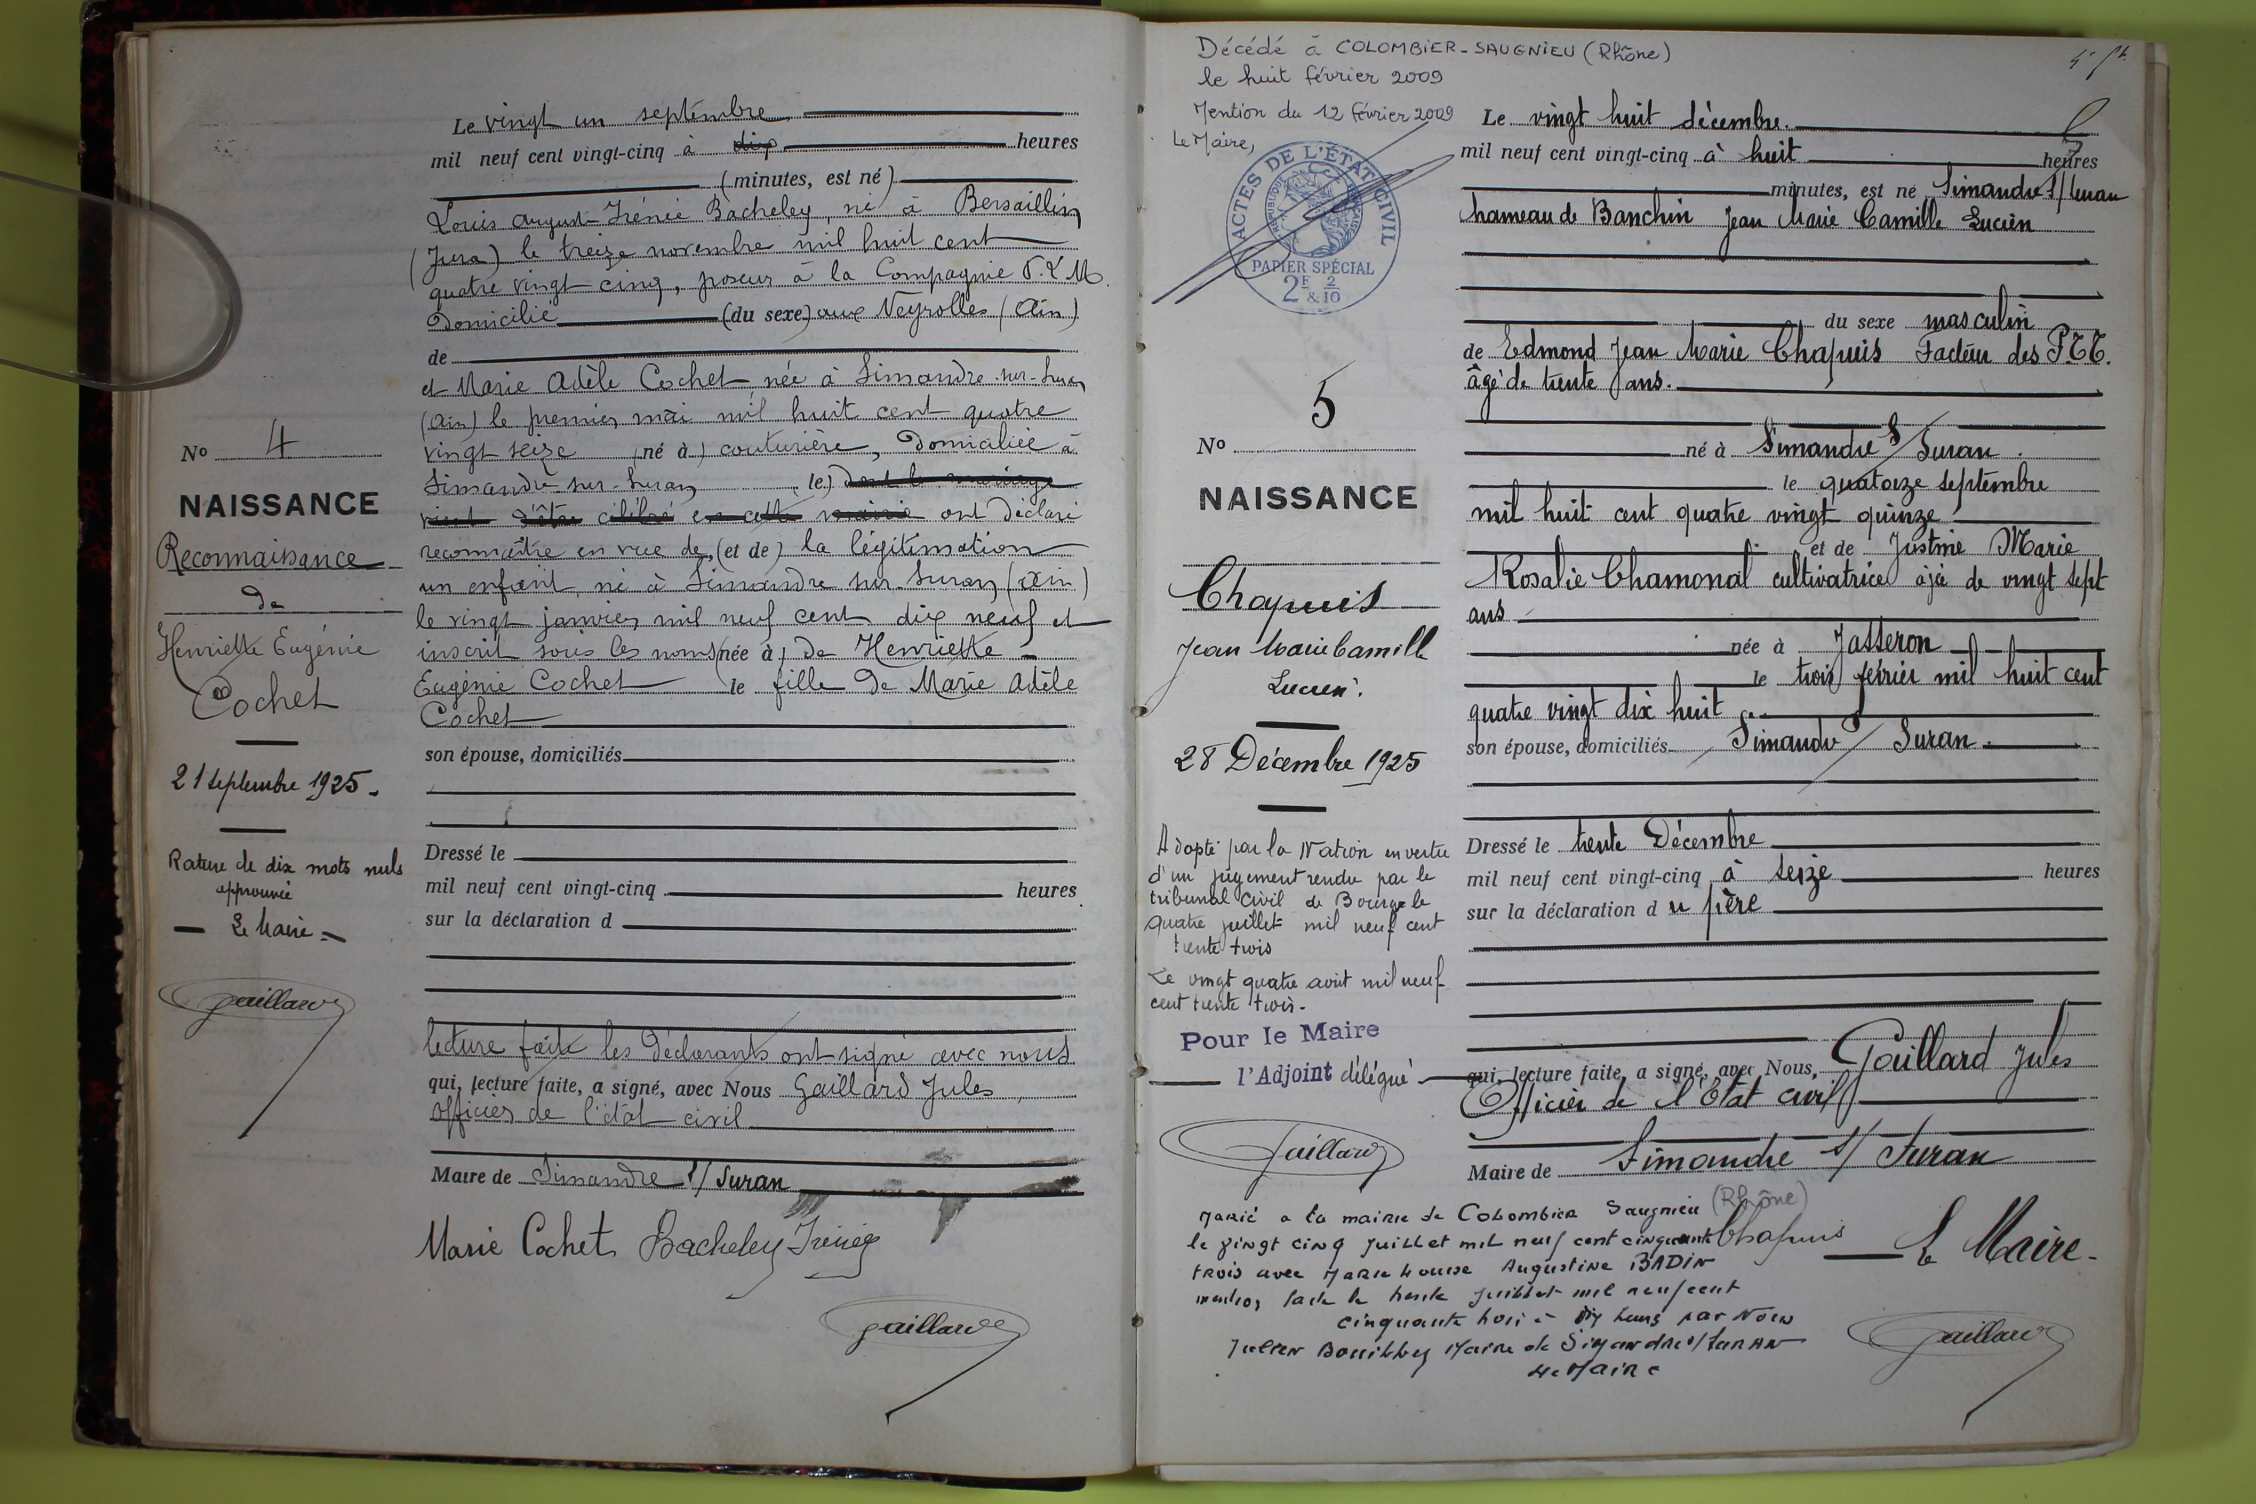 Le vingt un septembre
mil neuf cent vingt-cinq à dix heures
(minutes, est né)
Louis August Irénée Bacheley, né à Bersaillin
(Jura) le treize novembre mil huit cent
quatre vingt cinq, poseur à la Compagnie P.L.M.
Domicilié (du sexe) aux Neyrolles (Ain)
de
et Marie Adèle Cochet née à Simandre-sur-Suran
(Ain) le premier mai mil huit cent quatre
vingt seize (né à) couturière, Domiciliée à
Simandre-sur-Suran (le) dont le mariage
vient d'être célébré en cette mairie ont déclaré
reconnaître en vue de (et de) la légitimation
un enfant né à Simandre sur Suran (Ain)
le vingt janvier mil neuf cent dix neuf et
inscrit sous les noms (née à) de Henriette
Eugénie Cochet le fille de Marie Adèle
Cochet
son épouse, domiciliés
Dressé le
mil neuf cent vingt-cinq heures
sur la déclaration d
lecture faite les déclarants ont signé avec nous
qui, lecture faite, a signé, avec Nous Gaillard Jules
officier de l'état civil
Maire de Simandre s/ Suran
Marie Cochet Bacheley Irénée
Gaillard
No 4
NAISSANCE
Reconnaissance
de
Henriette Eugénie
Cochet
21 septembre 1925.
Rature de dix mots nuls
approuvée
Le Maire
Gaillard
Décédé à COLOMBIER-SAUGNIEU (Rhône)
le huit février 2009
Mention du 12 février 2009
Le Maire,
ACTES DE L'ÉTAT CIVIL
PAPIER SPÉCIAL
2F 2
& 10
No 5
NAISSANCE
Chapuis
Jean Marie Camille
Lucien.
28 Décembre 1925
Adopté par la Nation en vertu
d'un jugement rendu par le
tribunal civil de Bourg le
quatre juillet mil neuf cent
trente trois
Le vingt quatre août mil neuf
cent trente trois.
Pour le Maire
l'Adjoint délégué
Gaillard
Le vingt huit décembre.
mil neuf cent vingt-cinq à huit heures
minutes, est né Simandre s/ Suran
hameau de Banchin Jean Marie Camille Lucien
du sexe masculin
de Edmond Jean Marie Chapuis Facteur des P.T.T.
âgé de trente ans.
né à Simandre s/ Suran.
le quatorze septembre
mil huit cent quatre vingt quinze
et de Justine Marie
Rosalie Chamonal cultivatrice âgée de vingt sept
ans
née à Jasseron
le trois février mil huit cent
quatre vingt dix huit
son épouse, domiciliés Simandre s/ Suran.
Dressé le trente Décembre
mil neuf cent vingt-cinq à seize heures
sur la déclaration du père
qui, lecture faite, a signé, avec Nous, Gaillard Jules
Officier de l'État civil
Maire de Simandre s/ Suran
Chapuis Le Maire
Gaillard
Marié a la mairie de Colombier Saugnieu (Rhône)
le vingt cinq juillet mil neuf cent cinquante
trois avec Marie Louise Augustine BADIN
mention faite le trente juillet mil neuf cent
cinquante trois à dix heures par Nous
Julien Bouilley Maire de Simandre s/ Suran
Le Maire